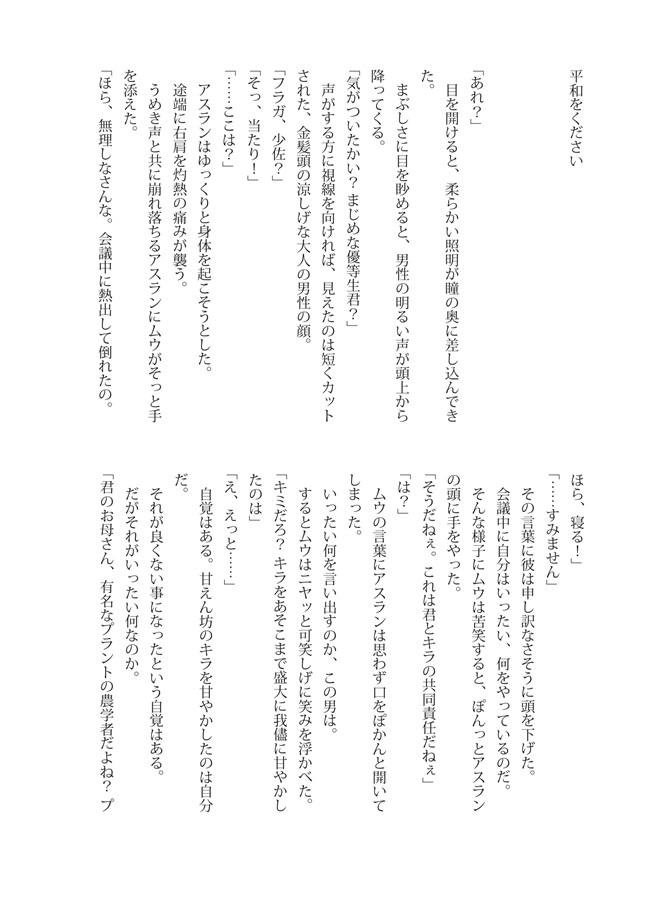 平和をください
「あれ？」
　目を開けると、柔らかい照明が瞳の奥に差し込んでき
た。
　まぶしさに目を眇めると、男性の明るい声が頭上から
降ってくる。
「気がついたかい？ まじめな優等生君？」
　声がする方に視線を向ければ、見えたのは短くカット
された、金髪頭の涼しげな大人の男性の顔。
「フラガ、少佐？」
「そっ、当たり！」
「……ここは？」
　アスランはゆっくりと身体を起こそうとした。
　途端に右肩を灼熱の痛みが襲う。
　うめき声と共に崩れ落ちるアスランにムウがそっと手
を添えた。
「ほら、無理しなさんな。会議中に熱出して倒れたの。
ほら、寝る！」
「……すみません」
　その言葉に彼は申し訳なさそうに頭を下げた。
　会議中に自分はいったい、何をやっているのだ。
　そんな様子にムウは苦笑すると、ぽんっとアスラン
の頭に手をやった。
「そうだねぇ。これは君とキラの共同責任だねぇ」
「は？」
　ムウの言葉にアスランは思わず口をぽかんと開いて
しまった。
　いったい何を言い出すのか、この男は。
　するとムウはニヤッと可笑しげに笑みを浮かべた。
「キミだろ？ キラをあそこまで盛大に我儘に甘やかし
たのは」
「え、えっと……」
　自覚はある。甘えん坊のキラを甘やかしたのは自分
だ。
　それが良くない事になったという自覚はある。
　だがそれがいったい何なのか。
「君のお母さん、有名なプラントの農学者だよね？ プ